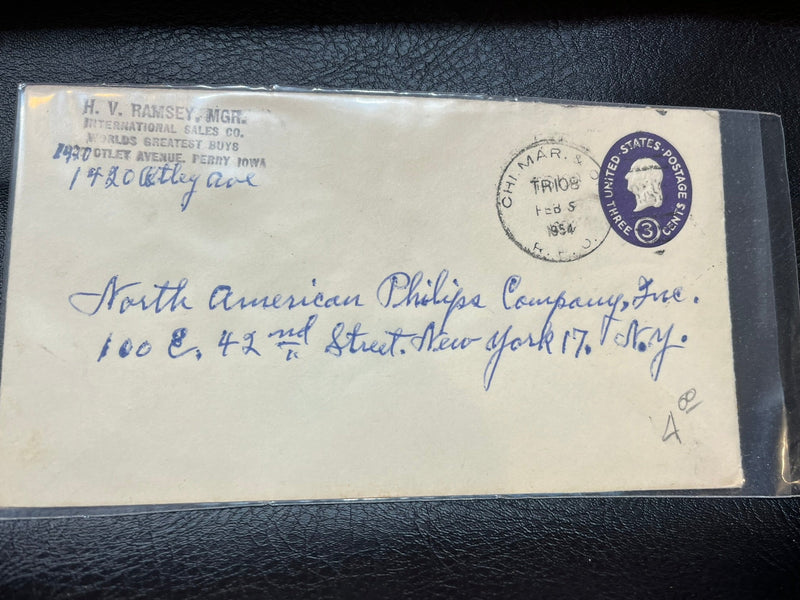 H. V. RAMSEY, MGR.
INTERNATIONAL SALES CO.
WORLDS GREATEST BUYS
1420 OTLEY AVENUE, PERRY IOWA
1420 Otley Ave
CHI. MAR. &
TR108
FEB 5
1954
R. P. O.
UNITED STATES POSTAGE
THREE 3 CENTS
North American Philips Company, Inc.
100 E. 42nd Street. New York 17. N.Y.
4 00